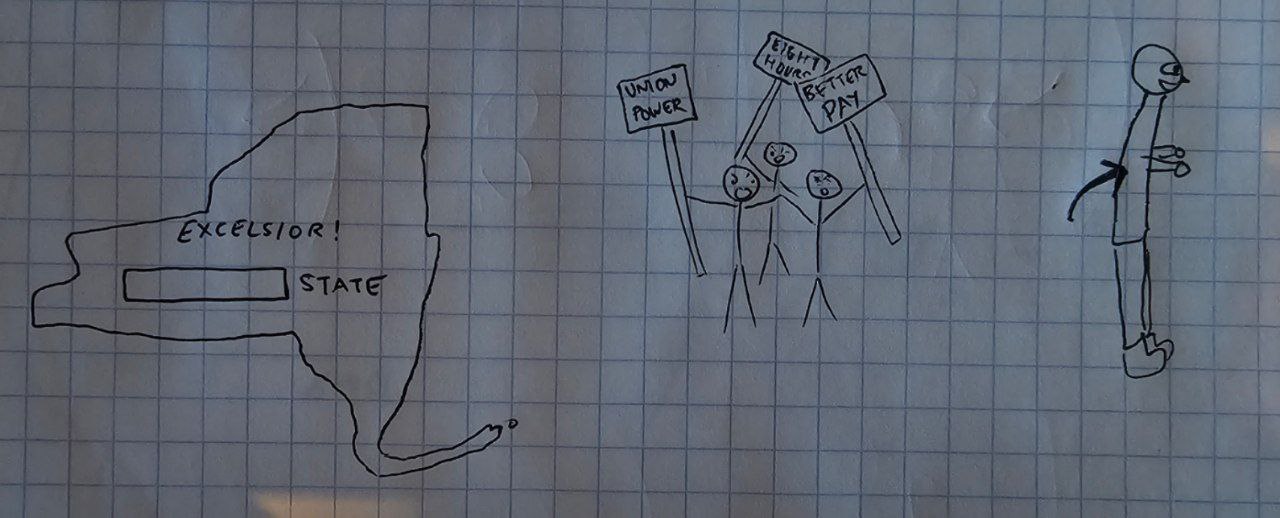 EXCELSIOR!
STATE
UNION
POWER
EIGHT
HOURS
BETTER
PAY